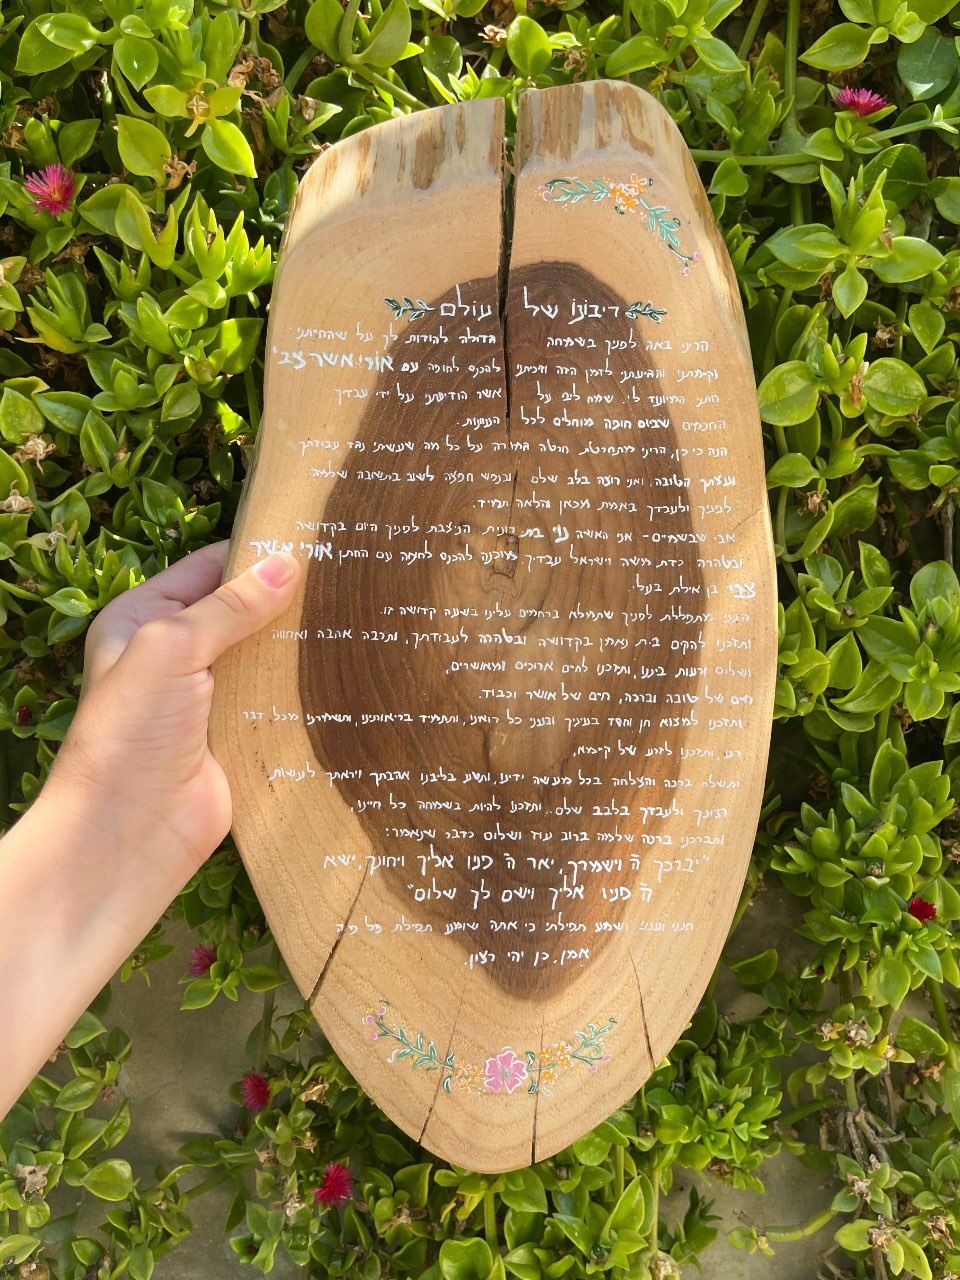 ריבונו של עולם
הריני באה לפניך בשמחה גדולה להודות לך על שהחייתני
וקיימתני והגעתני לזמן הזה וזיכיתני להכנס לחופה עם אורי אשר צבי
חתני המיועד לי. שמח ליבי על אשר הודיעתני על ידי עבדיך
החכמים שביום חופה מוחלים לכל העוונות.
הנה כי כן, הריני מתחרטת חרטה גמורה על כל מה שעשיתי נגד עבודתך
ורצונך הטובה. ואני רוצה בלב שלם ובנפש חפצה לשוב בתשובה שלמה
לפניך ולעבדך באמת מכאן והלאה תמיד.
אבי שבשמיים - אני האשה נוי בת רונית הניצבת לפניך היום בקדושה
ובטהרה כדת משה וישראל עבדיך מוכנה להכנס לחופה עם החתן אורי אשר
צבי בן אילת בעלי.
הנני מתפללת לפניך שתמלא ברחמים עלינו בשעה קדושה זו.
ותזכנו להקים בית נאמן בקדושה ובטהרה לעבודתך, ותרבה אהבה ואחווה
ושלום ורעות ביננו, ותזכנו לחיים ארוכים ומאושרים,
חיים של טובה וברכה, חיים של אושר וכבוד.
ותזכנו למצוא חן וחסד בעיניך ובעיני כל רואנו, ותתמיד בריאותינו, ותשמרנו מכל דבר
רע, ותזכנו לזרע של קיימא.
ותשלח ברכה והצלחה בכל מעשה ידינו, ותטע בליבנו אהבתך ויראתך לעשות
רצונך ולעבדך בלבב שלם. ותזכנו להיות בשמחה כל חיינו,
ותברכנו ברכה שלמה ברוב עוז ושלום כדבר שנאמר:
"יברכך ה' וישמרך, יאר ה' פניו אליך ויחונך, ישא
ה' פניו אליך וישם לך שלום"
חנני ועננו ושמע תפילתי כי אתה שומע תפילת כל פה
אמן, כן יהי רצון.